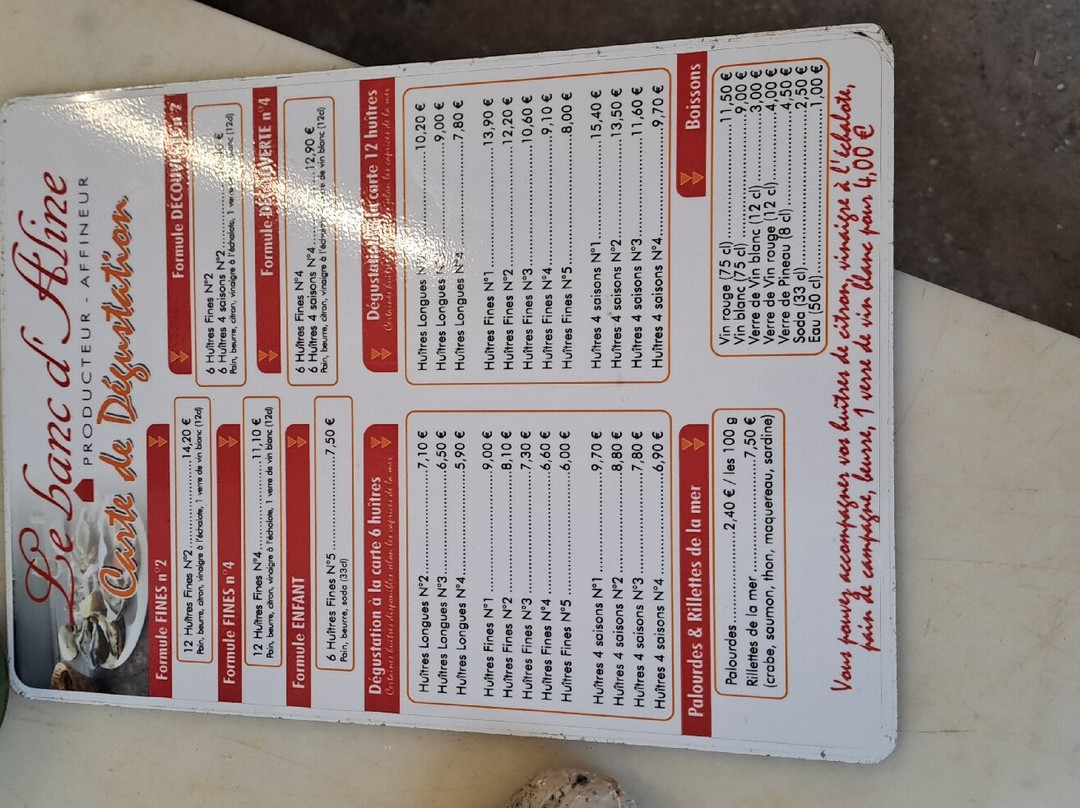 Le banc d'Aline
PRODUCTEUR - AFFINEUR
Carte de Dégustation
Formule FINES n°2
12 Huîtres Fines N°2..................14,20 €
Pain, beurre, citron, vinaigre à l'échalote, 1 verre de vin blanc (12cl)
Formule FINES n°4
12 Huîtres Fines N°4..................11,10 €
Pain, beurre, citron, vinaigre à l'échalote, 1 verre de vin blanc (12cl)
Formule ENFANT
6 Huîtres Fines N°5....................7,50 €
Pain, beurre, soda (33cl)
Formule DÉCOUVERTE n°2
6 Huîtres Fines N°2
6 Huîtres 4 saisons N°2 €
Pain, beurre, citron, vinaigre à l'échalote, 1 verre blanc (12cl)
Formule DÉCOUVERTE n°4
6 Huîtres Fines N°4
6 Huîtres 4 saisons N°4..............12,90 €
Pain, beurre, citron, vinaigre à l'échalote, de vin blanc (12cl)
Dégustation à la carte 6 huîtres
Certaines huîtres disponibles selon les caprices de la mer
Huîtres Longues N°2..................7,10 €
Huîtres Longues N°3..................6,50 €
Huîtres Longues N°4..................5,90 €
Huîtres Fines N°1......................9,00 €
Huîtres Fines N°2......................8,10 €
Huîtres Fines N°3......................7,30 €
Huîtres Fines N°4......................6,60 €
Huîtres Fines N°5......................6,00 €
Huîtres 4 saisons N°1................9,70 €
Huîtres 4 saisons N°2................8,80 €
Huîtres 4 saisons N°3................7,80 €
Huîtres 4 saisons N°4................6,90 €
Dégustation à la carte 12 huîtres
Certaines huîtres selon les caprices de la mer
Huîtres Longues ..................10,20 €
Huîtres Longues ..................9,00 €
Huîtres Longues N°4..................7,80 €
Huîtres Fines N°1......................13,90 €
Huîtres Fines N°2......................12,20 €
Huîtres Fines N°3......................10,60 €
Huîtres Fines N°4......................9,10 €
Huîtres Fines N°5......................8,00 €
Huîtres 4 saisons N°1................15,40 €
Huîtres 4 saisons N°2................13,50 €
Huîtres 4 saisons N°3................11,60 €
Huîtres 4 saisons N°4................9,70 €
Palourdes & Rillettes de la mer
Palourdes..................2,40 € / les 100 g
Rillettes de la mer ......................7,50 €
(crabe, saumon, thon, maquereau, sardine)
Boissons
Vin rouge (75 cl)......................11,50 €
Vin blanc (75 cl)......................9,00 €
Verre de Vin blanc (12 cl)............3,00 €
Verre de Vin rouge (12 cl)............4,00 €
Verre de Pineau (8 cl)................4,50 €
Soda (33 cl)............................2,50 €
Eau (50 cl)..............................1,00 €
Vous pouvez accompagner vos huîtres de citron, vinaigre à l'échalote,
pain de campagne, beurre, 1 verre de vin blanc pour 4,00 €